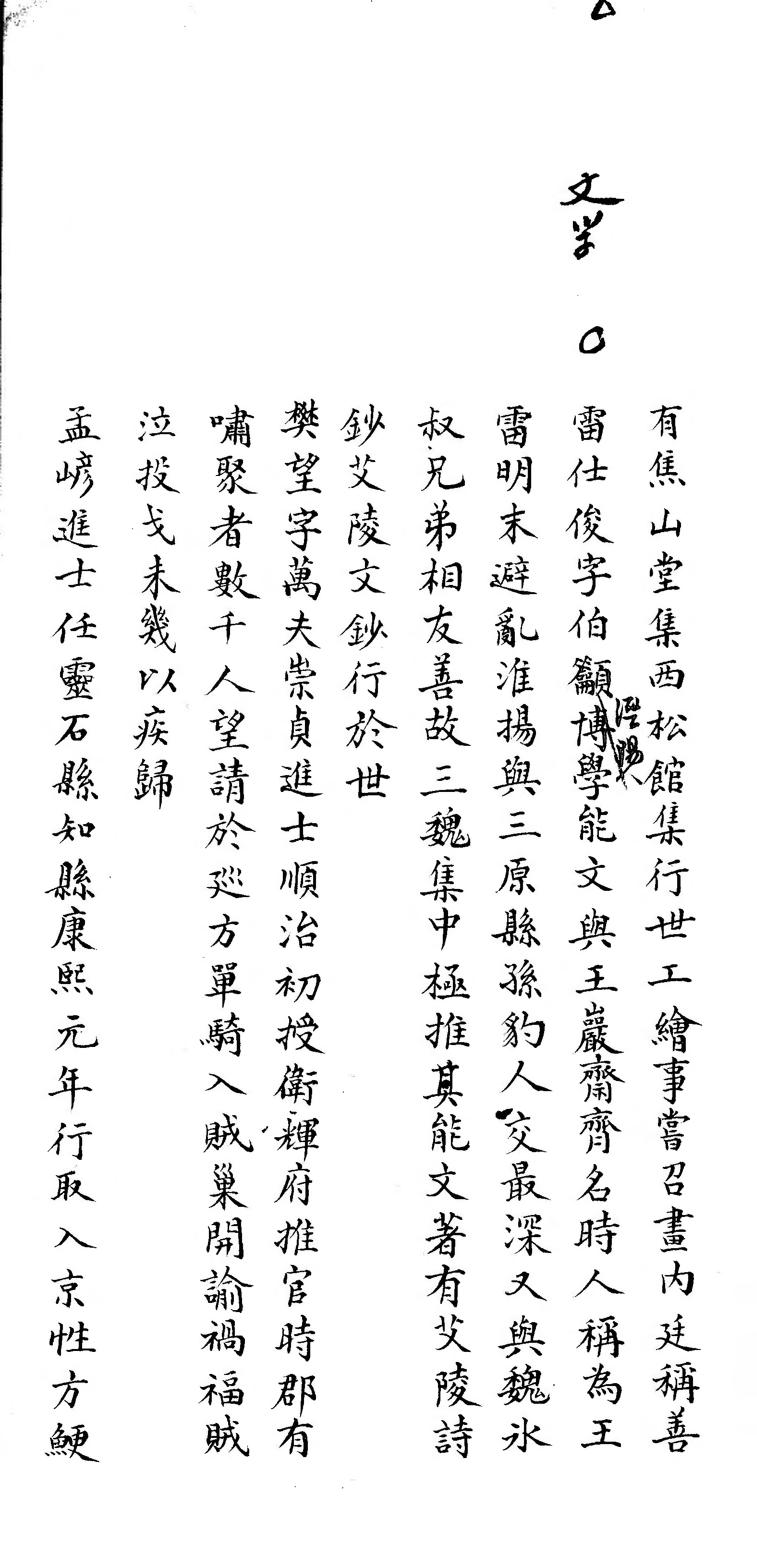 有焦山堂集西松館集行世工繪事嘗召畫内廷稱善
文学
雷仕俊字伯籲博學能文與王巖齋齊名時人稱為王
涇陽人
雷明末避亂淮揚與三原縣孫豹人交最深又與魏氷
叔兄弟相友善故三魏集中極推其能文著有艾陵詩
鈔艾陵文鈔行於世
樊望字萬夫崇貞進士順治初授衛輝府推官時郡有
嘯聚者數千人望請於廵方單騎入賊巢開諭禍福賊
泣投戈未幾以疾歸
孟㟼進士任靈石縣知縣康熙元年行取入京性方鯁